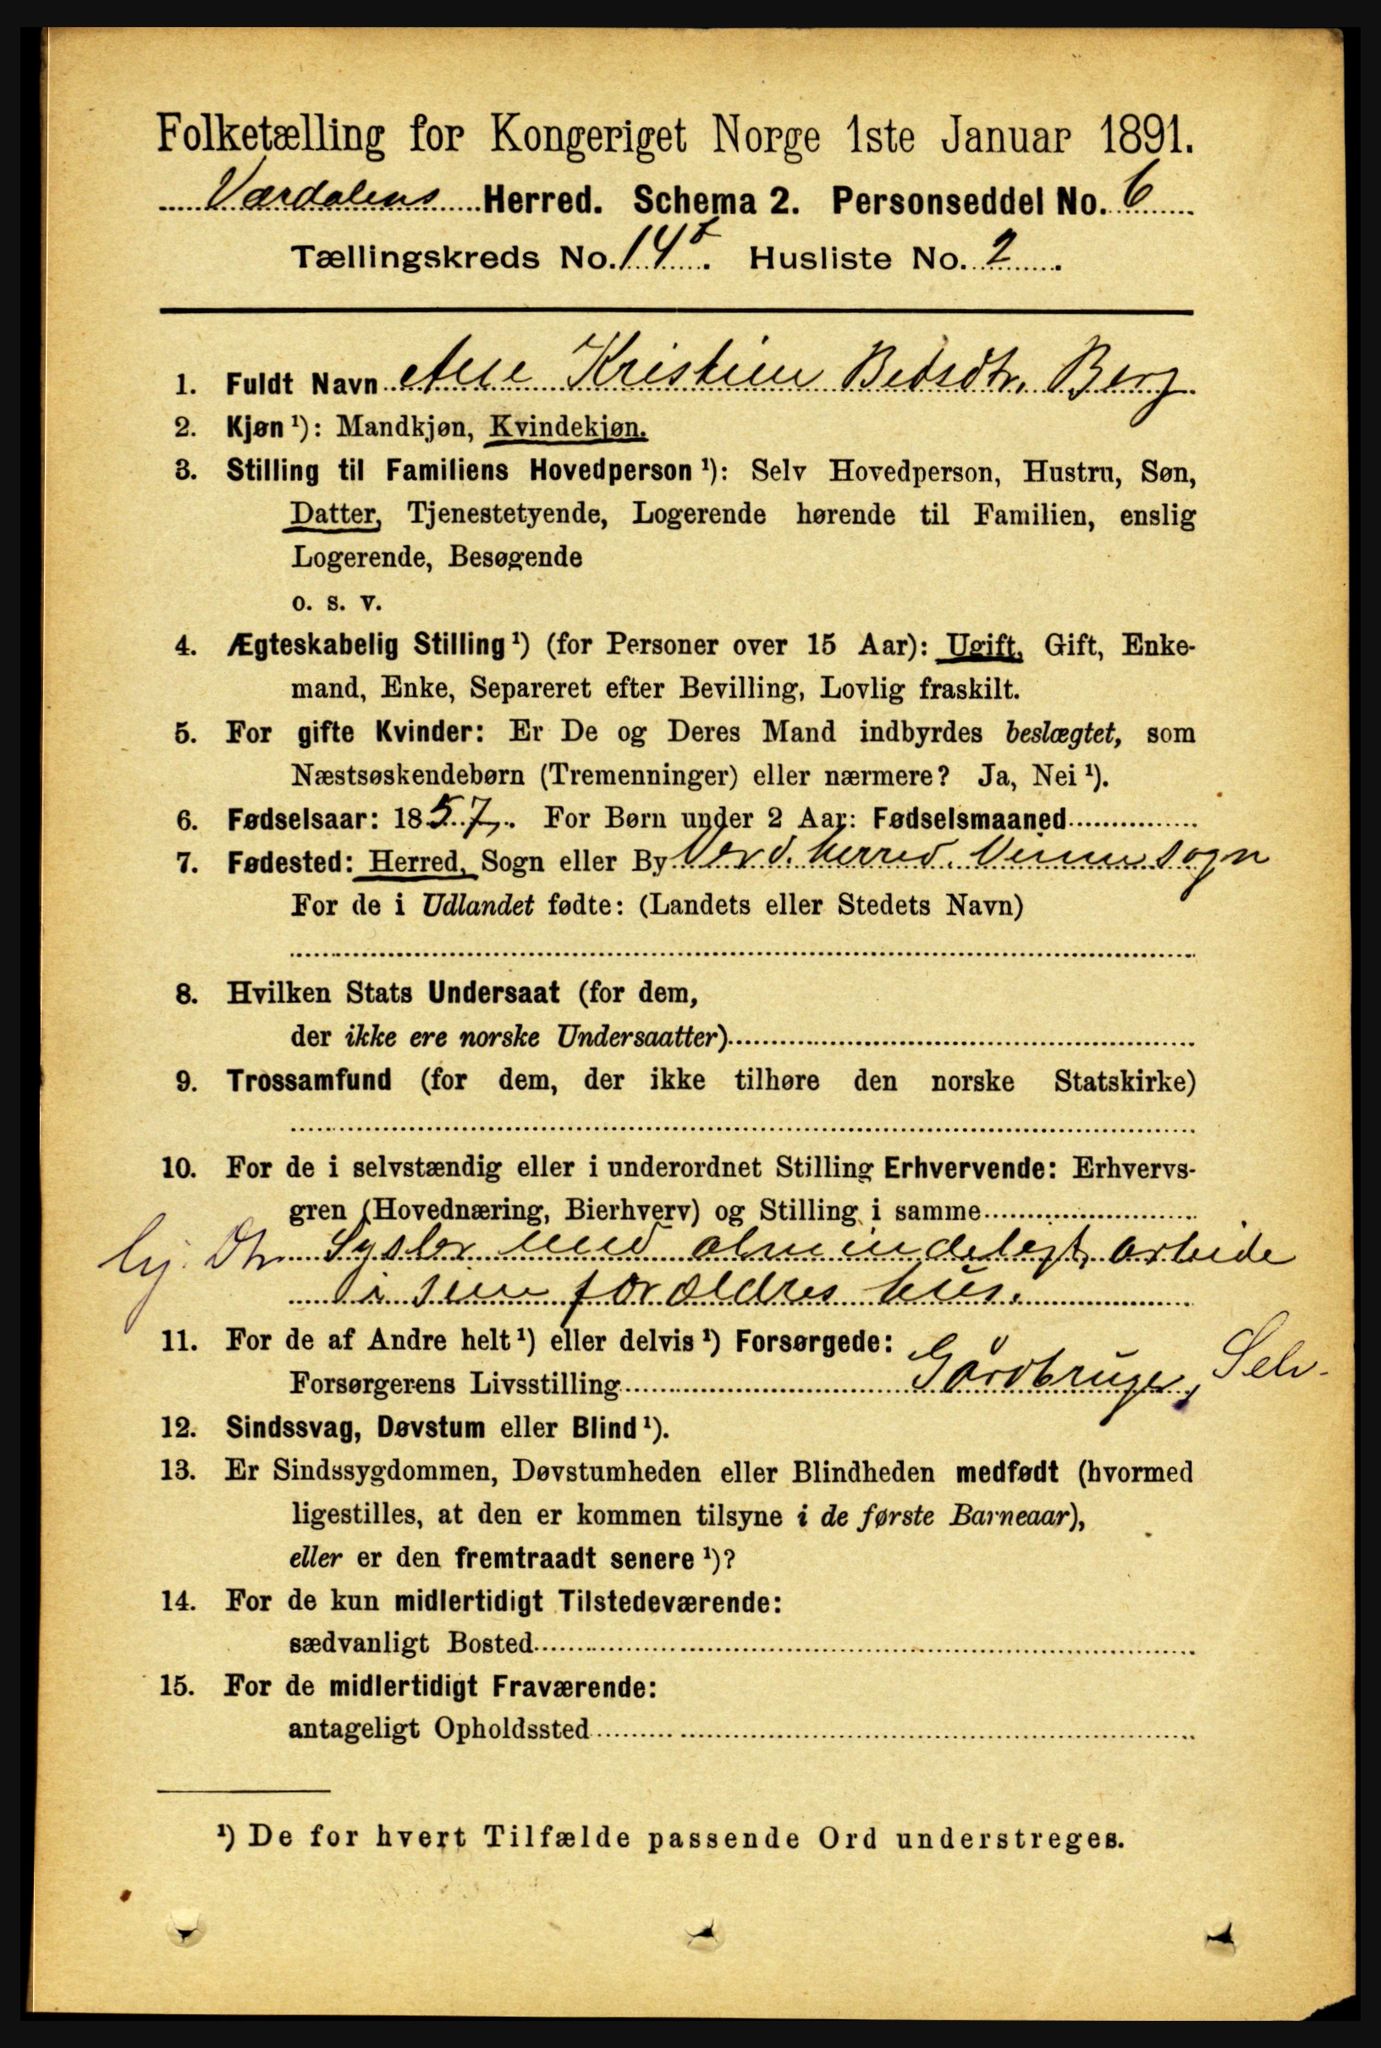 Folketælling for Kongeriget Norge 1ste Januar 1891.
Værdalens Herred. Schema 2. Personseddel No. 6
Tællingskreds No. 14 Husliste No. 2
1. Fuldt Navn Kristine Berg
2. Kjøn ¹): Mandkjøn, Kvindekjøn.
3. Stilling til Familiens Hovedperson ¹): Selv Hovedperson, Hustru, Søn,
Datter, Tjenestetyende, Logerende hørende til Familien, enslig
Logerende, Besøgende
o. s. v.
4. Ægteskabelig Stilling ¹) (for Personer over 15 Aar): Ugift, Gift, Enke-
mand, Enke, Separeret efter Bevilling, Lovlig fraskilt.
5. For gifte Kvinder: Er De og Deres Mand indbyrdes beslægtet, som
Næstsøskendebørn (Tremenninger) eller nærmere? Ja, Nei ¹).
6. Fødselsaar: 1857. For Børn under 2 Aar: Fødselsmaaned
7. Fødested: Herred, Sogn eller By Værd. herred. Vinne sogn
For de i Udlandet fødte: (Landets eller Stedets Navn)
8. Hvilken Stats Undersaat (for dem,
der ikke ere norske Undersaatter)
9. Trossamfund (for dem, der ikke tilhøre den norske Statskirke)
10. For de i selvstændig eller i underordnet Stilling Erhvervende: Erhvervs-
gren (Hovednæring, Bierhverv) og Stilling i samme
Sysler med almindeligt arbeide
i sine forældres hus.
11. For de af Andre helt ¹) eller delvis ¹) Forsørgede:
Forsørgerens Livsstilling Gårdbruger, Selv.
12. Sindssvag, Døvstum eller Blind ¹).
13. Er Sindssygdommen, Døvstumheden eller Blindheden medfødt (hvormed
ligestilles, at den er kommen tilsyne i de første Barneaar),
eller er den fremtraadt senere ¹)?
14. For de kun midlertidigt Tilstedeværende:
sædvanligt Bosted
15. For de midlertidigt Fraværende:
antageligt Opholdssted
¹) De for hvert Tilfælde passende Ord understreges.